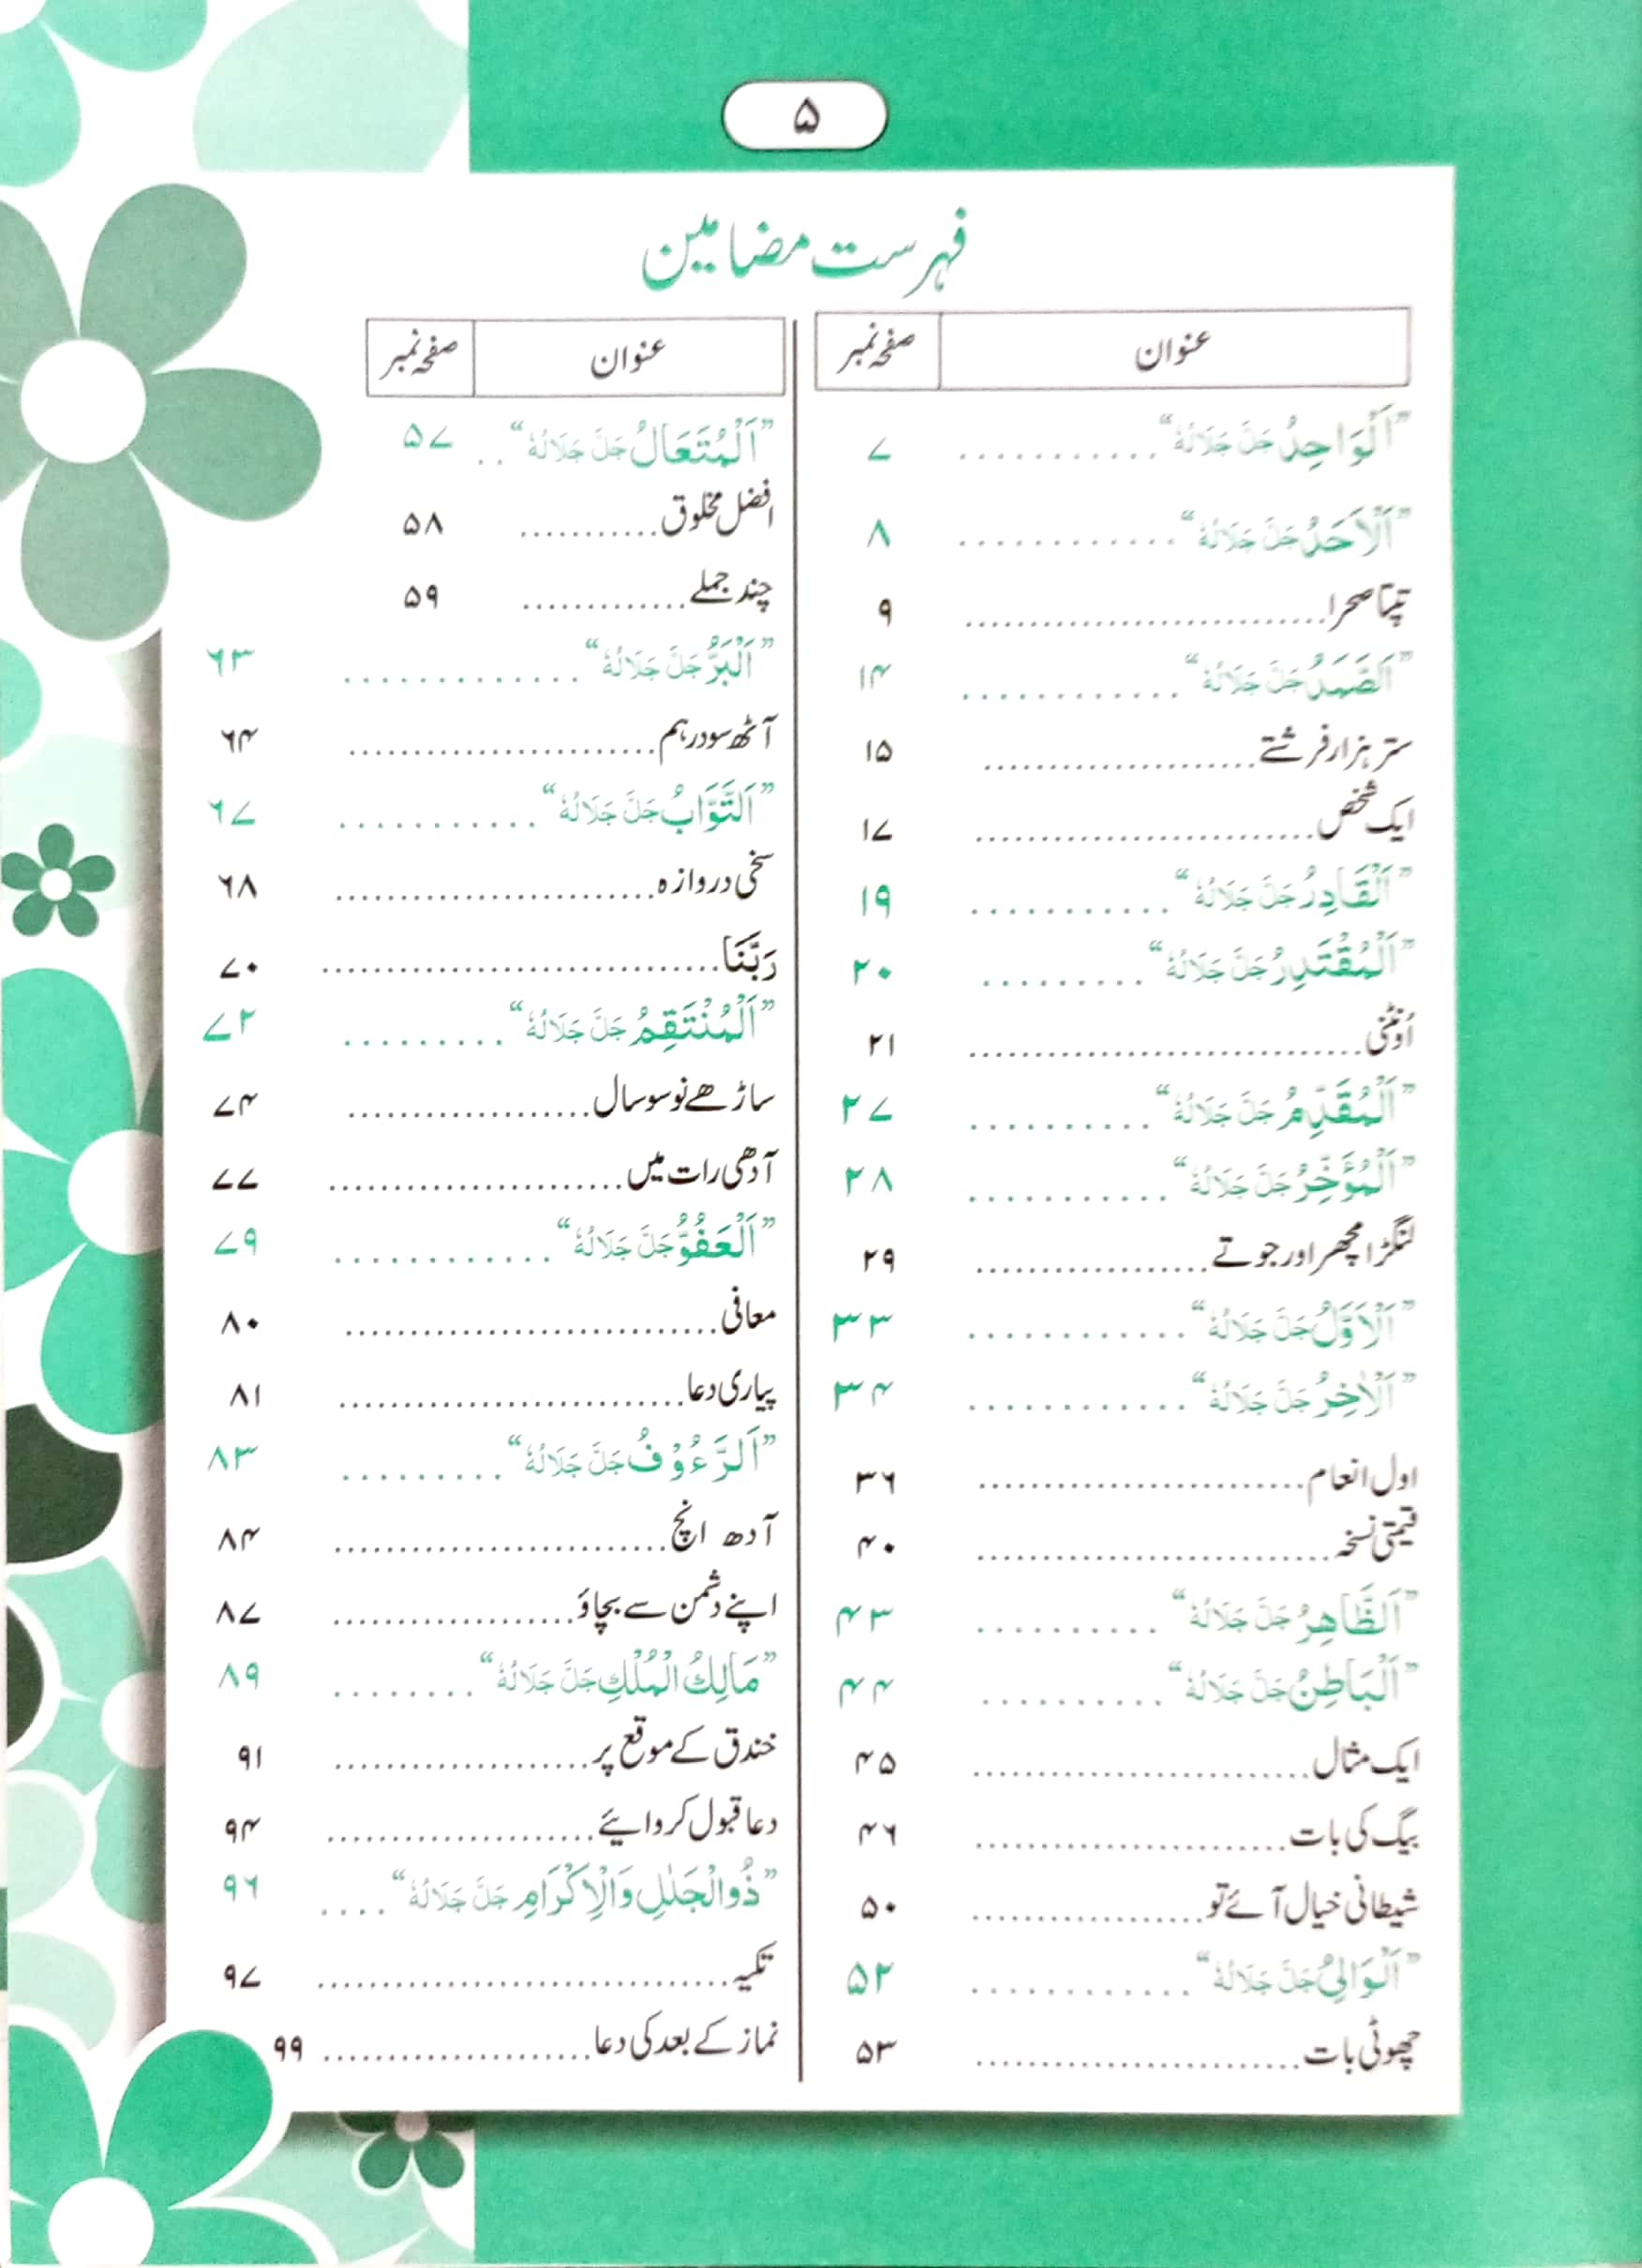 ۵
فہرست مضامین
عنوان صفحہ نمبر
”اَلْوَاحِدُ جَلَّ جَلَالُہٗ“ ........... ۷
”اَلْاَحَدُ جَلَّ جَلَالُہٗ“ ............ ۸
تپتا صحرا ............................ ۹
”اَلصَّمَدُ جَلَّ جَلَالُہٗ“ ............ ۱۴
ستر ہزار فرشتے ..................... ۱۵
ایک شخص .......................... ۱۷
”اَلْقَادِرُ جَلَّ جَلَالُہٗ“ ........... ۱۹
”اَلْمُقْتَدِرُ جَلَّ جَلَالُہٗ“ ......... ۲۰
اونٹنی .............................. ۲۱
”اَلْمُقَدِّمُ جَلَّ جَلَالُہٗ“ .......... ۲۷
”اَلْمُؤَخِّرُ جَلَّ جَلَالُہٗ“ ........... ۲۸
لنگڑا مچھر اور جوتے .................. ۲۹
”اَلْاَوَّلُ جَلَّ جَلَالُہٗ“ ............ ۳۳
”اَلْاٰخِرُ جَلَّ جَلَالُہٗ“ ............ ۳۴
اول انعام ......................... ۳۶
قیمتی نسخہ ........................... ۴۰
”اَلظَّاهِرُ جَلَّ جَلَالُہٗ“ .......... ۴۳
”اَلْبَاطِنُ جَلَّ جَلَالُہٗ“ .......... ۴۴
ایک مثال .......................... ۴۵
بیگ کی بات ........................ ۴۶
شیطانی خیال آئے تو .................. ۵۰
”اَلْوَالِیُ جَلَّ جَلَالُہٗ“ ............ ۵۲
چھوٹی بات ......................... ۵۳
عنوان صفحہ نمبر
”اَلْمُتَعَالُ جَلَّ جَلَالُہٗ“ .. ۵۷
افضل مخلوق ........... ۵۸
چند جملے ............. ۵۹
”اَلْبَرُّ جَلَّ جَلَالُہٗ“ ............. ۶۳
آٹھ سو درہم ........................ ۶۴
”اَلتَّوَّابُ جَلَّ جَلَالُہٗ“ ........... ۶۷
سخی دروازہ ......................... ۶۸
رَبَّنَا ............................... ۷۰
”اَلْمُنْتَقِمُ جَلَّ جَلَالُہٗ“ ......... ۷۲
ساڑھے نو سو سال ................... ۷۴
آدھی رات میں ....................... ۷۷
”اَلْعَفُوُّ جَلَّ جَلَالُہٗ“ ............ ۷۹
معافی ............................. ۸۰
پیاری دعا .......................... ۸۱
”اَلرَّءُوْفُ جَلَّ جَلَالُہٗ“ ......... ۸۳
آدھ انچ .......................... ۸۴
اپنے دشمن سے بچاؤ ................... ۸۷
”مَالِكُ الْمُلْكِ جَلَّ جَلَالُہٗ“ ........ ۸۹
خندق کے موقع پر .................... ۹۱
دعا قبول کروایئے ..................... ۹۴
”ذُوالْجَلٰلِ وَالْاِكْرَامِ جَلَّ جَلَالُہٗ“ .... ۹۶
تکیہ ................................ ۹۷
نماز کے بعد کی دعا ..................... ۹۹